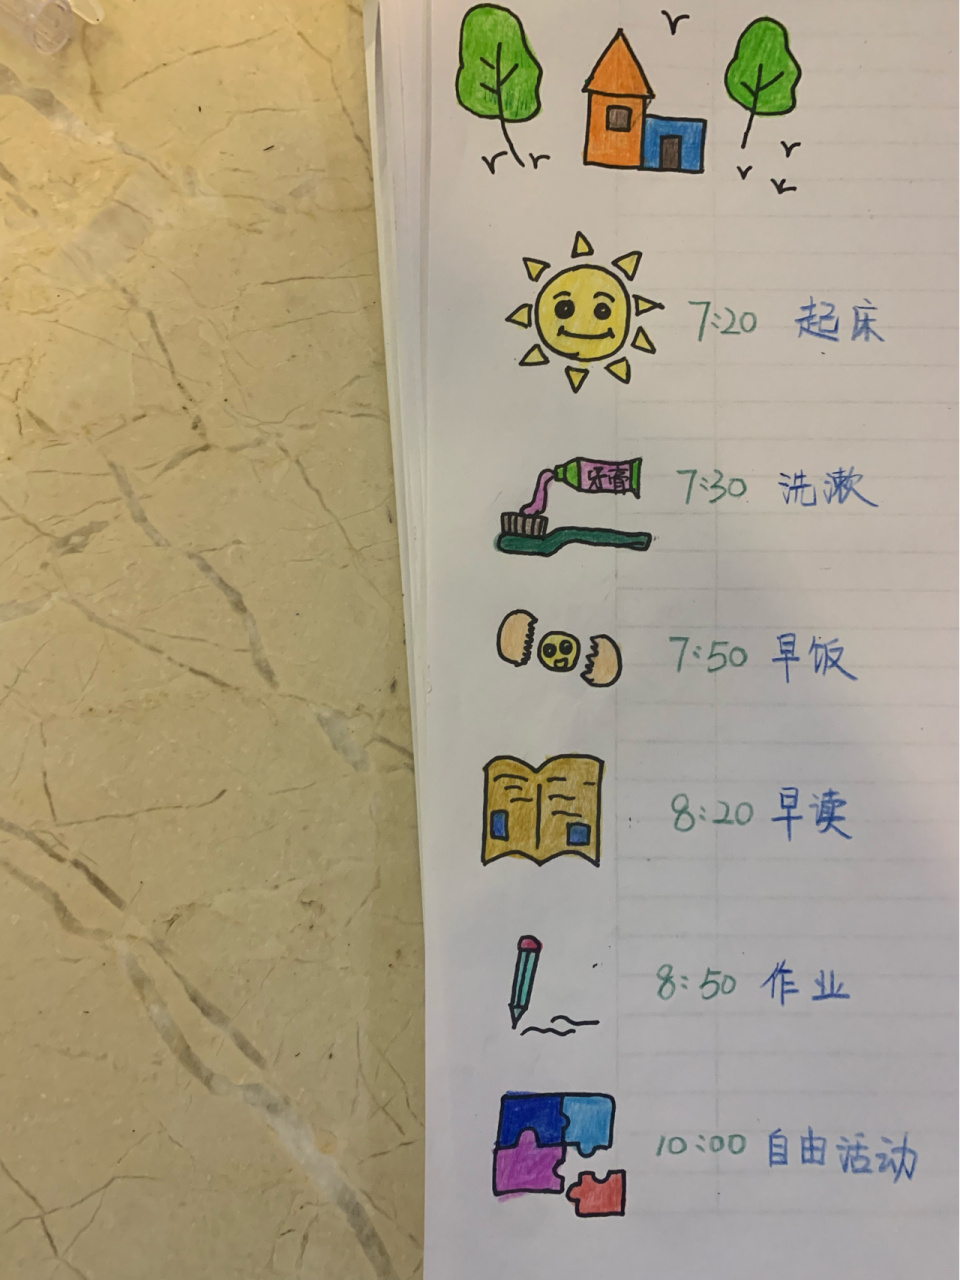 7:20 起床
牙膏
7:30 洗漱
7:50 早饭
8:20 早读
8:50 作业
10:00 自由活动